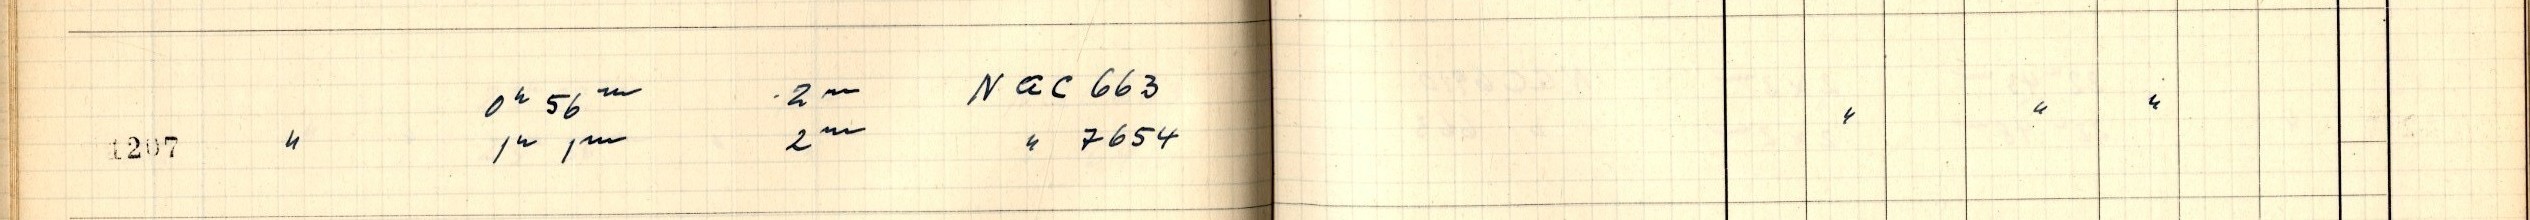 0ʰ 56ᵐ 2ᵐ NGC 663 " " "
1207 " 1ʰ 1ᵐ 2ᵐ " 7654